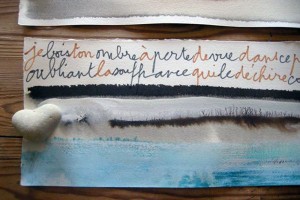 je bois ton ombre à perte de vue dans ce p
oubliant la souffrance qui le déchire c